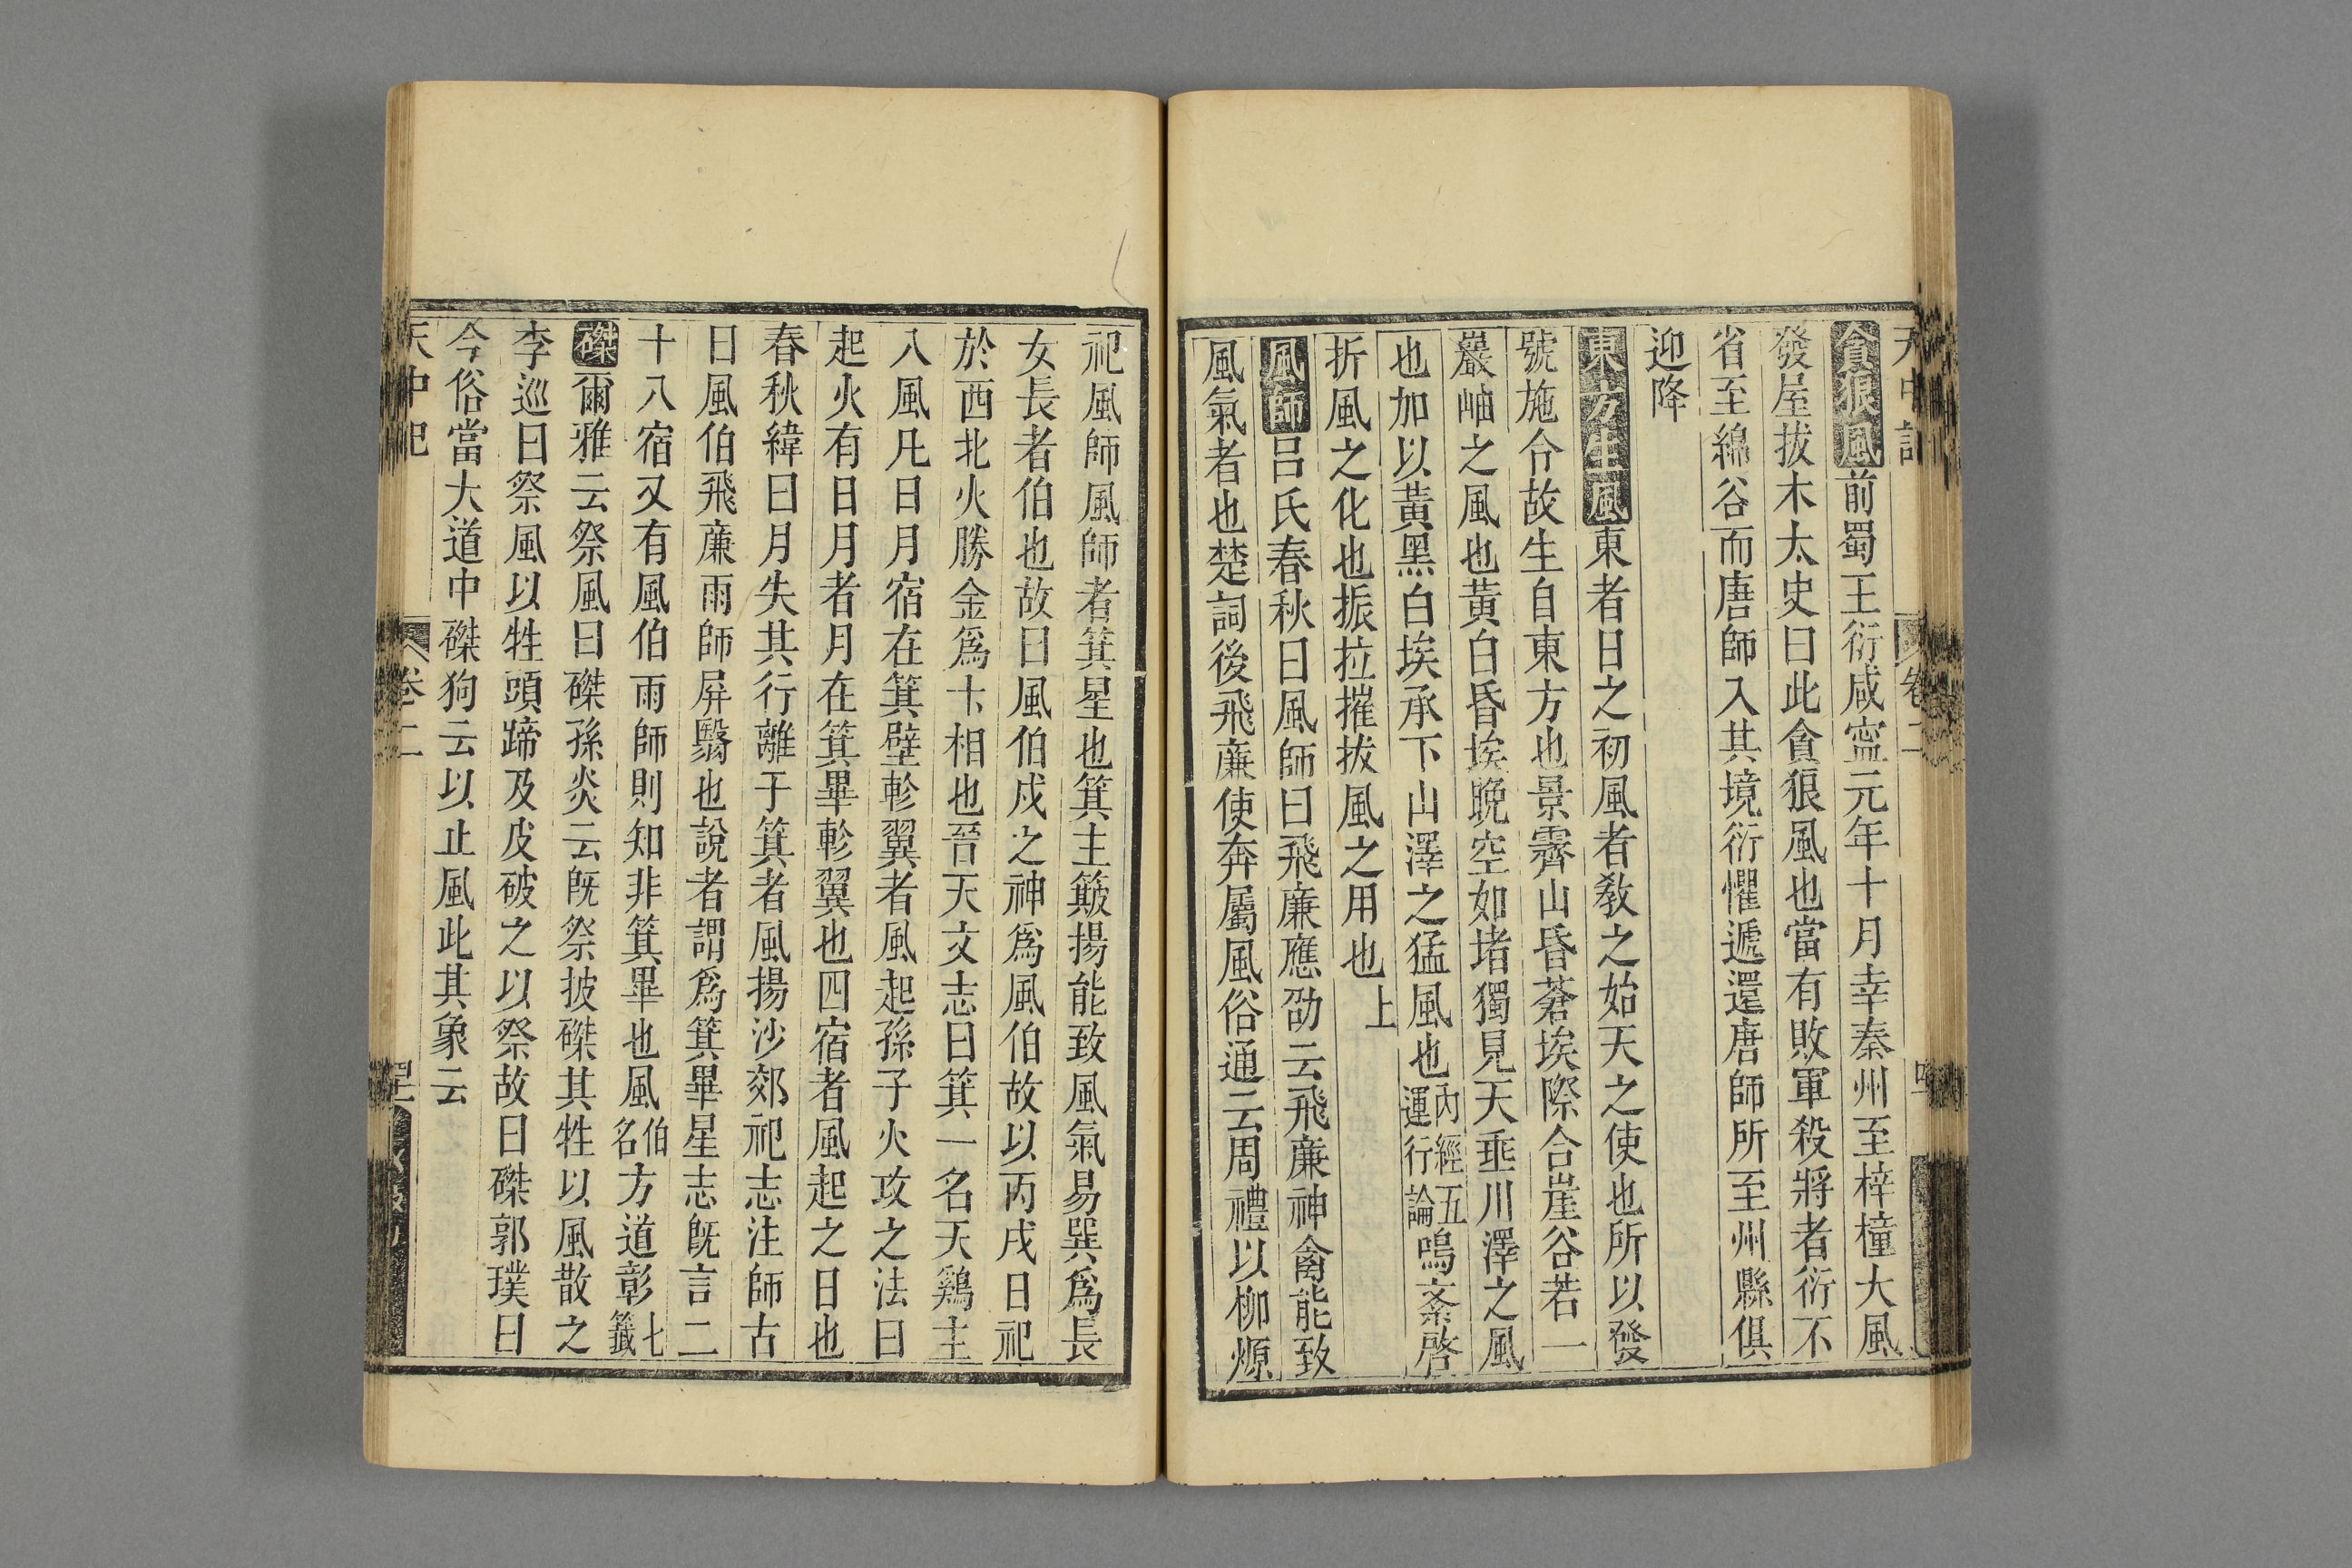 天中記
卷二
貪狼風前蜀王衍咸寧元年十月幸秦州至梓橦大風
發屋拔木太史曰此貪狼風也當有敗軍殺將者衍不
省至綿谷而唐師入其境衍懼遞還唐師所至州縣俱
迎降
東方生風東者日之初風者教之始天之使也所以發
號施令故生自東方也景霽山昏蒼埃際合崖谷若一
巖岫之風也黃白昏埃晚空如堵獨見天垂川澤之風
也加以黃黑白埃承下山澤之猛風也內經五運行論鳴紊啓
折風之化也振拉摧拔風之用也上
風師呂氏春秋曰風師曰飛廉應劭云飛廉神禽能致
風氣者也楚詞後飛廉使奔屬風俗通云周禮以柳燎
祀風師風師者箕星也箕主簸揚能致風氣易巽為長
女長者伯也故曰風伯戌之神為風伯故以丙戌日祀
於西北火勝金為卞相也晉天文志曰箕一名天鷄主
八風凡日月宿在箕壁軫翼者風起孫子火攻之法曰
起火有日月者月在箕畢軫翼也四宿者風起之日也
春秋緯曰月失其行離于箕者風揚沙郊祀志注師古
曰風伯飛廉雨師屏翳也說者謂為箕畢星志既言二
十八宿又有風伯雨師則知非箕畢也風伯名方道彰七籤
磔爾雅云祭風曰磔孫炎云既祭披磔其牲以風散之
李巡曰祭風以牲頭蹄及皮破之以祭故曰磔郭璞曰
今俗當大道中磔狗云以止風此其象云
天中記
卷二